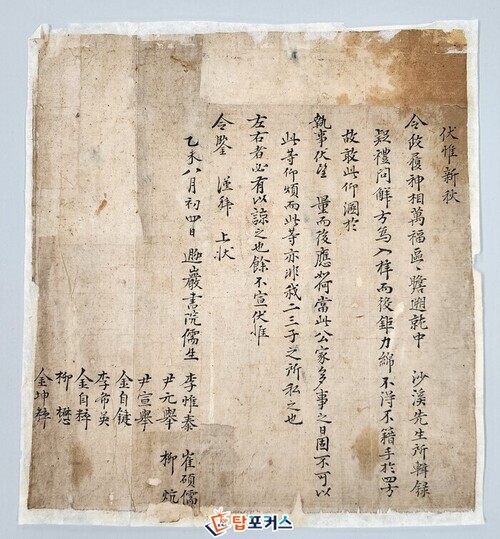 伏惟新秋
令政履神相萬福區〻瞻遡亂中 沙溪先生所輯錄
疑禮問解方爲入梓而後鉅力綿不得不籍手於四方
故敢此仰溷於
執事伏望 量而後應如何當此公家多事之日固不可以
此等仰煩而此等亦非我二三子之所私之也
左右者必有以諒之也餘不宣伏惟
令鑒 謹拜 上狀
乙未八月初四日 遯巖書院儒生 李惟泰 崔碩儒
尹元擧 柳炕
尹宣擧
金自鍵
李希英
金自粹
柳懋
金坤粹
탑포커스